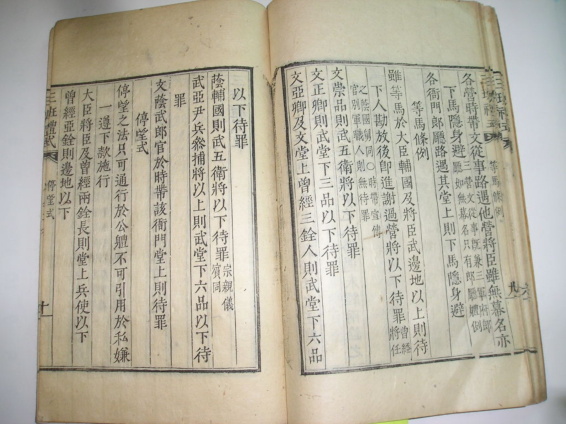 各營將帶文從事路過他營將臣雖無幕名亦
下馬隱身避
各衙門郎廳路遇其堂上則下馬隱身避
等馬條例
雖等馬於大臣輔國及將臣武邊地以上則待
下人勘放後卽進謝過營將以下待罪曾經將任
文崇品則武五衛將以下待罪
文正卿則武堂下三品以下待罪
文亞卿及文堂上曾經三銓人則武堂下六品
以下待罪
蔭輔國則武五衛將以下待罪宗親儀賓同
武亞尹兵參捕將以上則武堂下六品以下待
罪
文蔭武郎官於時帶該衙門堂上則待罪
停望式
停望之法只可通行於公體不可引用於私嫌
一遵下款施行
大臣將臣及曾經兩銓長則堂上兵使以下
曾經亞銓則邊地以下
三班禮式
停望式
十